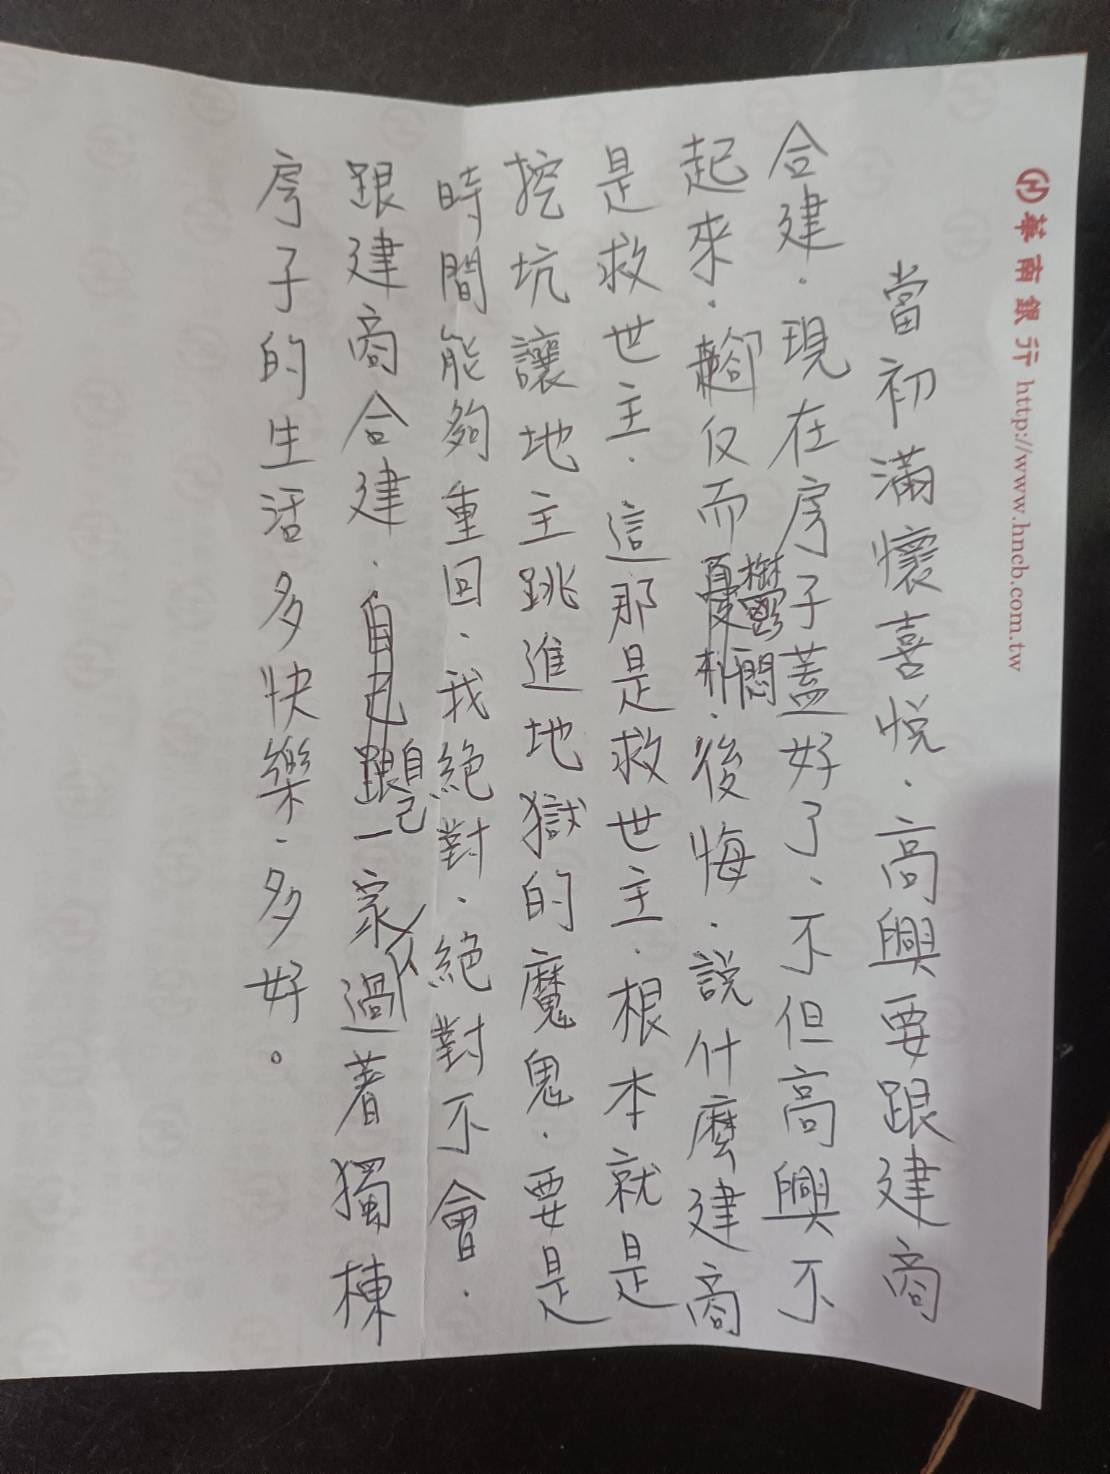 華南銀行 http://www.hncb.com.tw
當初滿懷喜悅.高興要跟建商
合建.現在房子蓋好了、不但高興不
起來.卻反而鬱悶.後悔.說什麼建商
是救世主.這那是救世主.根本就是
挖坑讓地主跳進地獄的魔鬼.要是
時間能夠重回、我絕對、絕對不會.
跟建商合建.自己一家人過著獨棟
房子的生活多快樂、多好。